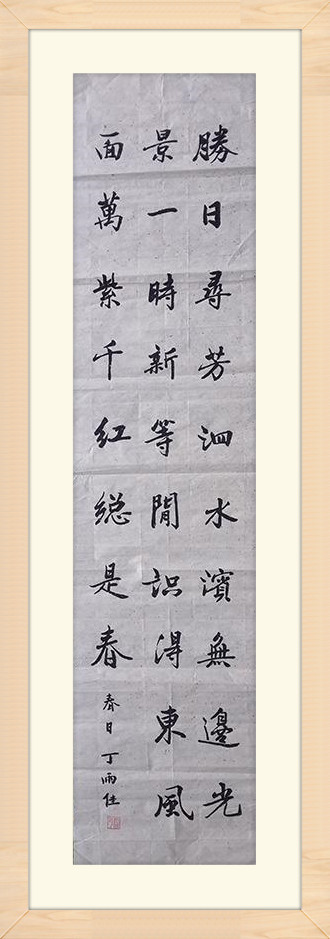 勝日尋芳泗水濱無邊光
景一時新等閒識得東風
面萬紫千紅總是春
春日 丁雨仕